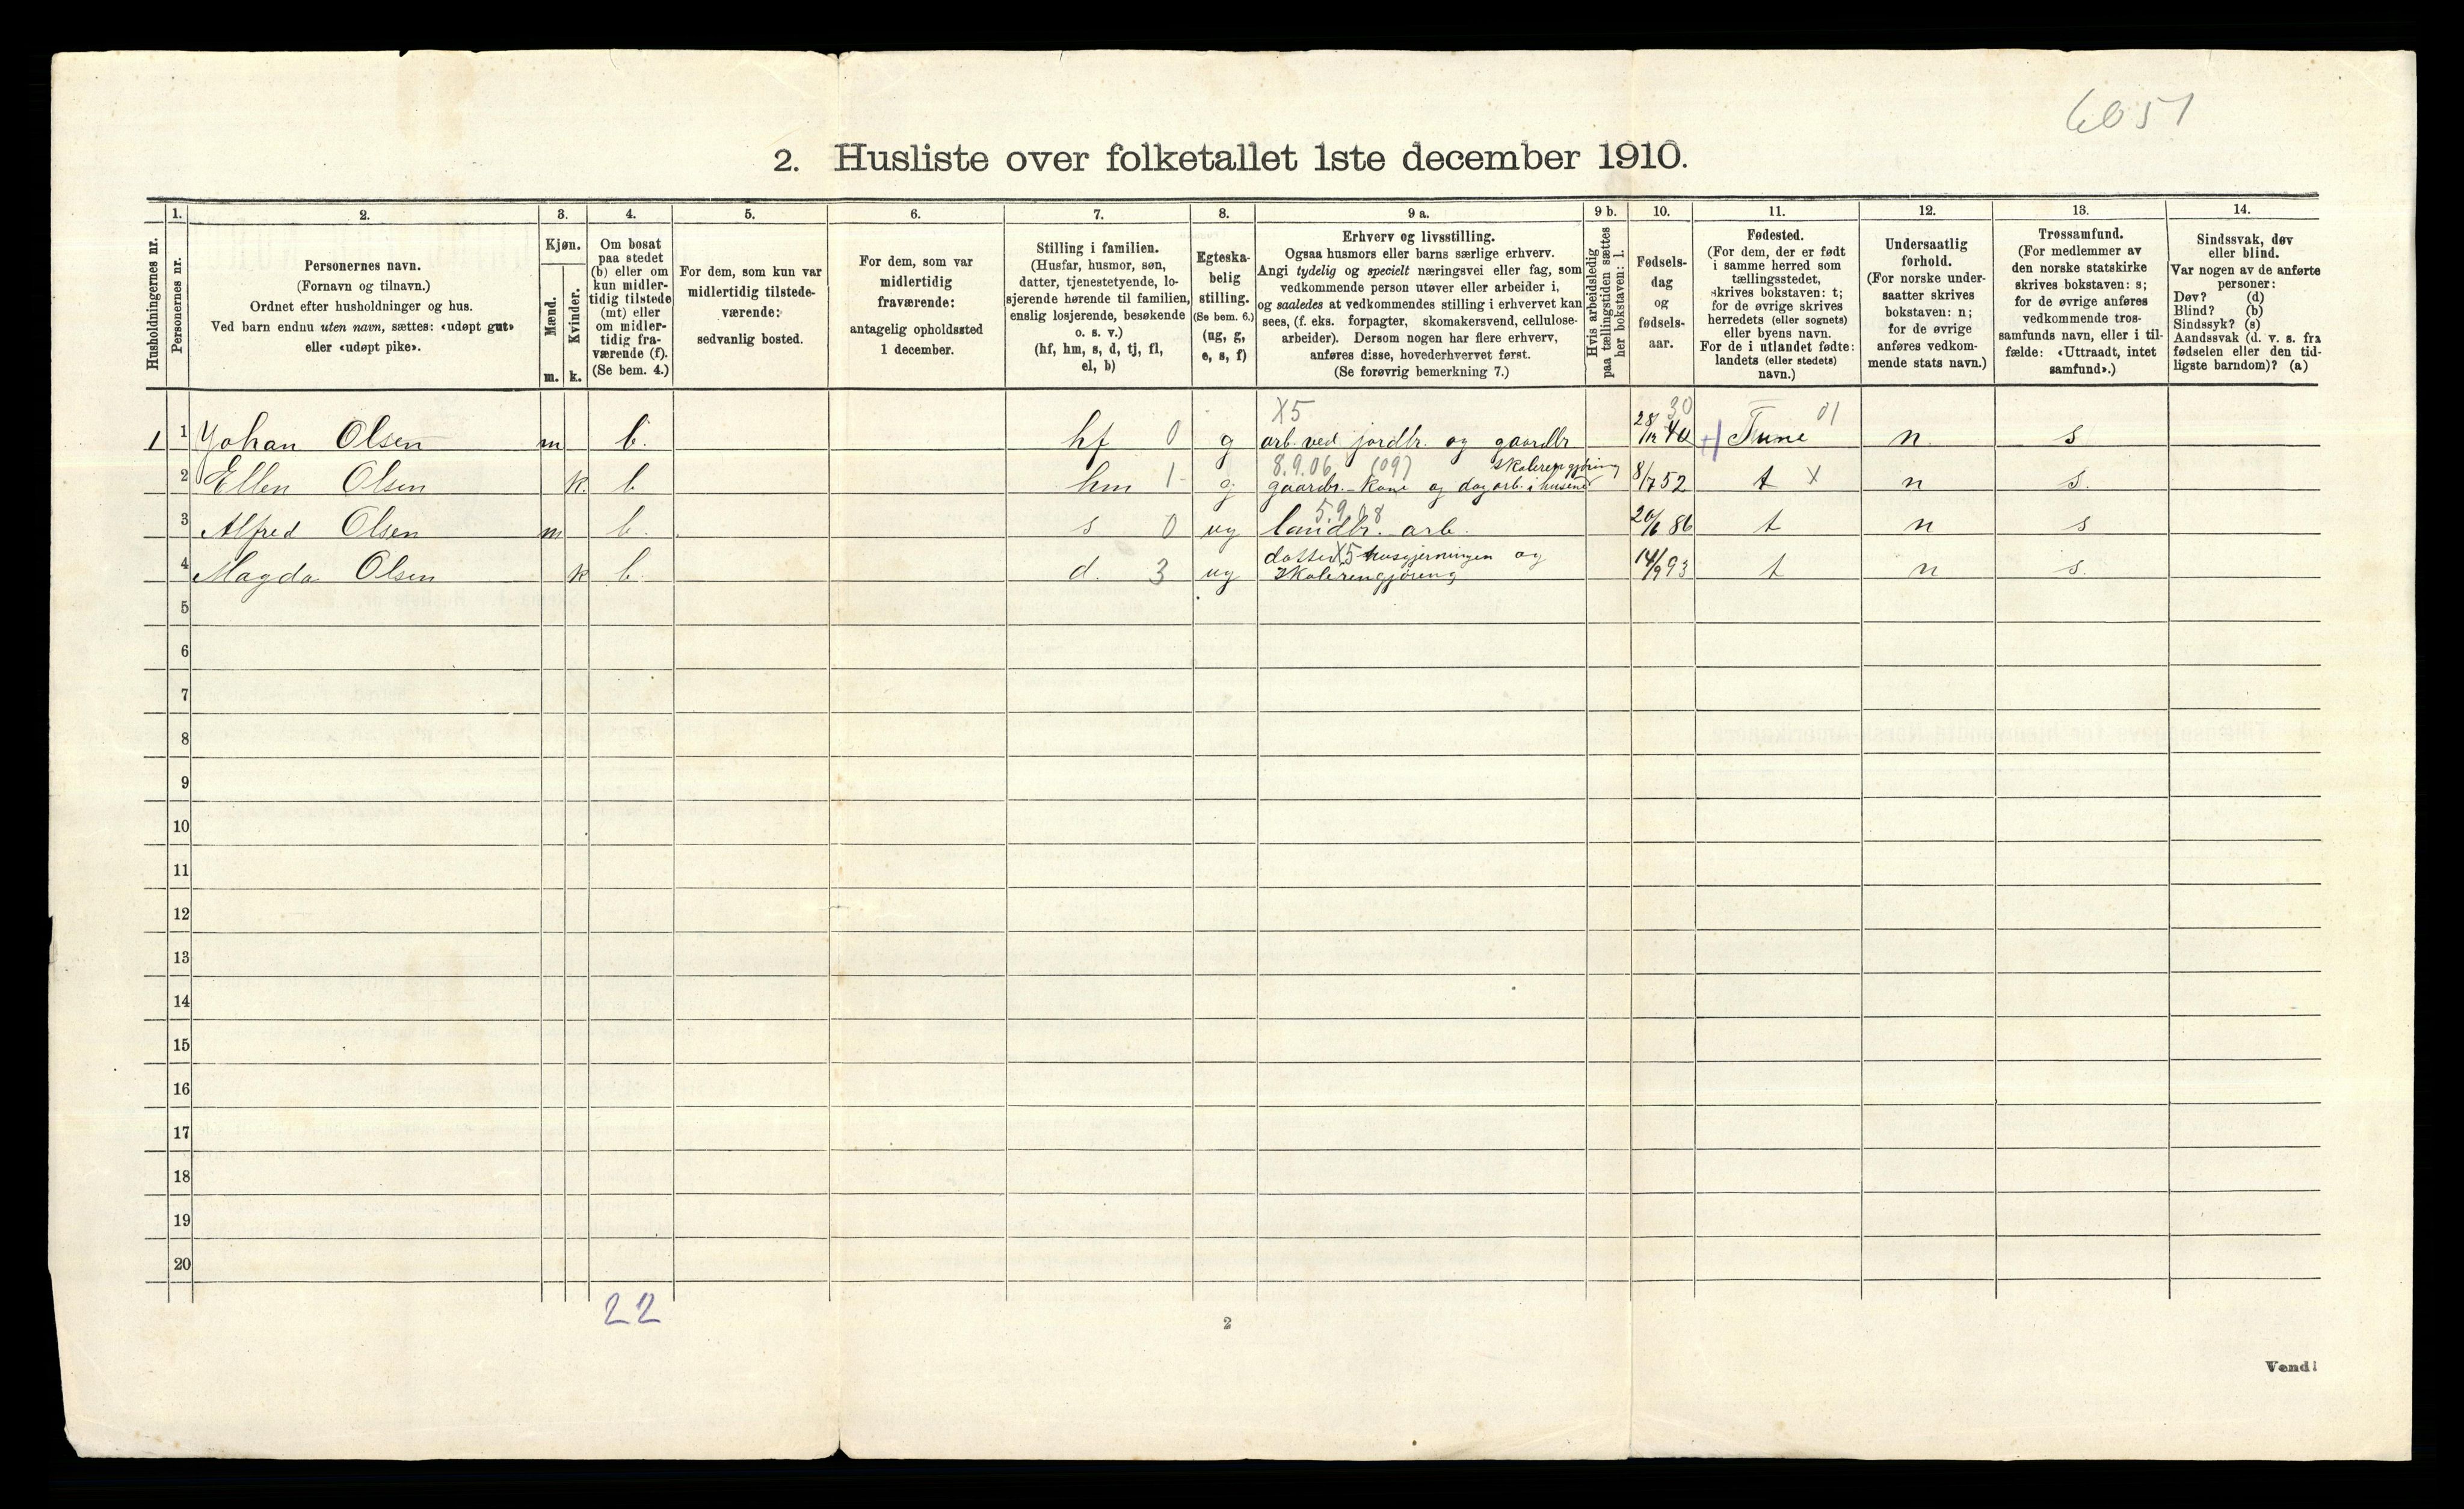 6051
2. Husliste over folketallet 1ste december 1910.
Husholdningernes nr.
1.
Personernes nr.
2.
Personernes navn.
(Fornavn og tilnavn.)
Ordnet efter husholdninger og hus.
Ved barn endnu uten navn, sættes: «udøpt gut»
eller «udøpt pike».
3.
Kjøn.
Mænd.
Kvinder.
m. k.
4.
Om bosat
paa stedet
(b) eller om
kun midler-
tidig tilstede
(mt) eller
om midler-
tidig fra-
værende (f).
(Se bem. 4.)
5.
For dem, som kun var
midlertidig tilstede-
værende:
sedvanlig bosted.
6.
For dem, som var
midlertidig
fraværende:
antagelig opholdssted
1 december.
7.
Stilling i familien.
(Husfar, husmor, søn,
datter, tjenestetyende, lo-
sjerende hørende til familien,
enslig losjerende, besøkende
o. s. v.)
(hf, hm, s, d, tj, fl,
el, b)
8.
Egteska-
belig
stilling.
(Se bem. 6.)
(ug, g,
e, s, f)
9 a.
Erhverv og livsstilling.
Ogsaa husmors eller barns særlige erhverv.
Angi tydelig og specielt næringsvei eller fag, som
vedkommende person utøver eller arbeider i,
og saaledes at vedkommendes stilling i erhvervet kan
sees, (f. eks. forpagter, skomakersvend, cellulose-
arbeider). Dersom nogen har flere erhverv,
anføres disse, hovederhvervet først.
(Se forøvrig bemerkning 7.)
9 b.
Hvis arbeidsledig
paa tællingstiden sættes
her bokstaven: l.
10.
Fødsels-
dag
og
fødsels-
aar.
11.
Fødested.
(For dem, der er født
i samme herred som
tællingsstedet,
skrives bokstaven: t;
for de øvrige skrives
herredets (eller sognets)
eller byens navn.
For de i utlandet fødte:
landets (eller stedets)
navn.)
12.
Undersaatlig
forhold.
(For norske under-
saatter skrives
bokstaven: n;
for de øvrige
anføres vedkom-
mende stats navn.)
13.
Trossamfund.
(For medlemmer av
den norske statskirke
skrives bokstaven: s;
for de øvrige anføres
vedkommende tros-
samfunds navn, eller i til-
fælde: «Uttraadt, intet
samfund».)
14.
Sindssvak, døv
eller blind.
Var nogen av de anførte
personer:
Døv? (d)
Blind? (b)
Sindssyk? (s)
Aandssvak (d. v. s. fra
fødselen eller den tid-
ligste barndom)? (a)
X5 30 01
1 1 Johan Olsen m b. hf 0 g arb. ved jordbr. og gaardbr 28/12 40 Tune n s
8.9.06 (09) Skolerengjøring
2 Ellen Olsen k. b hm 1 g gaardbr. kone og dagarb. i husene 8/7 52 t X n s.
5.9.08
3 Alfred Olsen m b. s 0 ug landbr. arb. 20/6 86 t n s
datter X5 husgjerningen og
4 Magda Olsen k b. d. 3 ug Skolerengjøring 14/9 93 t n s.
5
6
7
8
9
10
11
12
13
14
15
16
17
18
19
20
22
2
Vend!